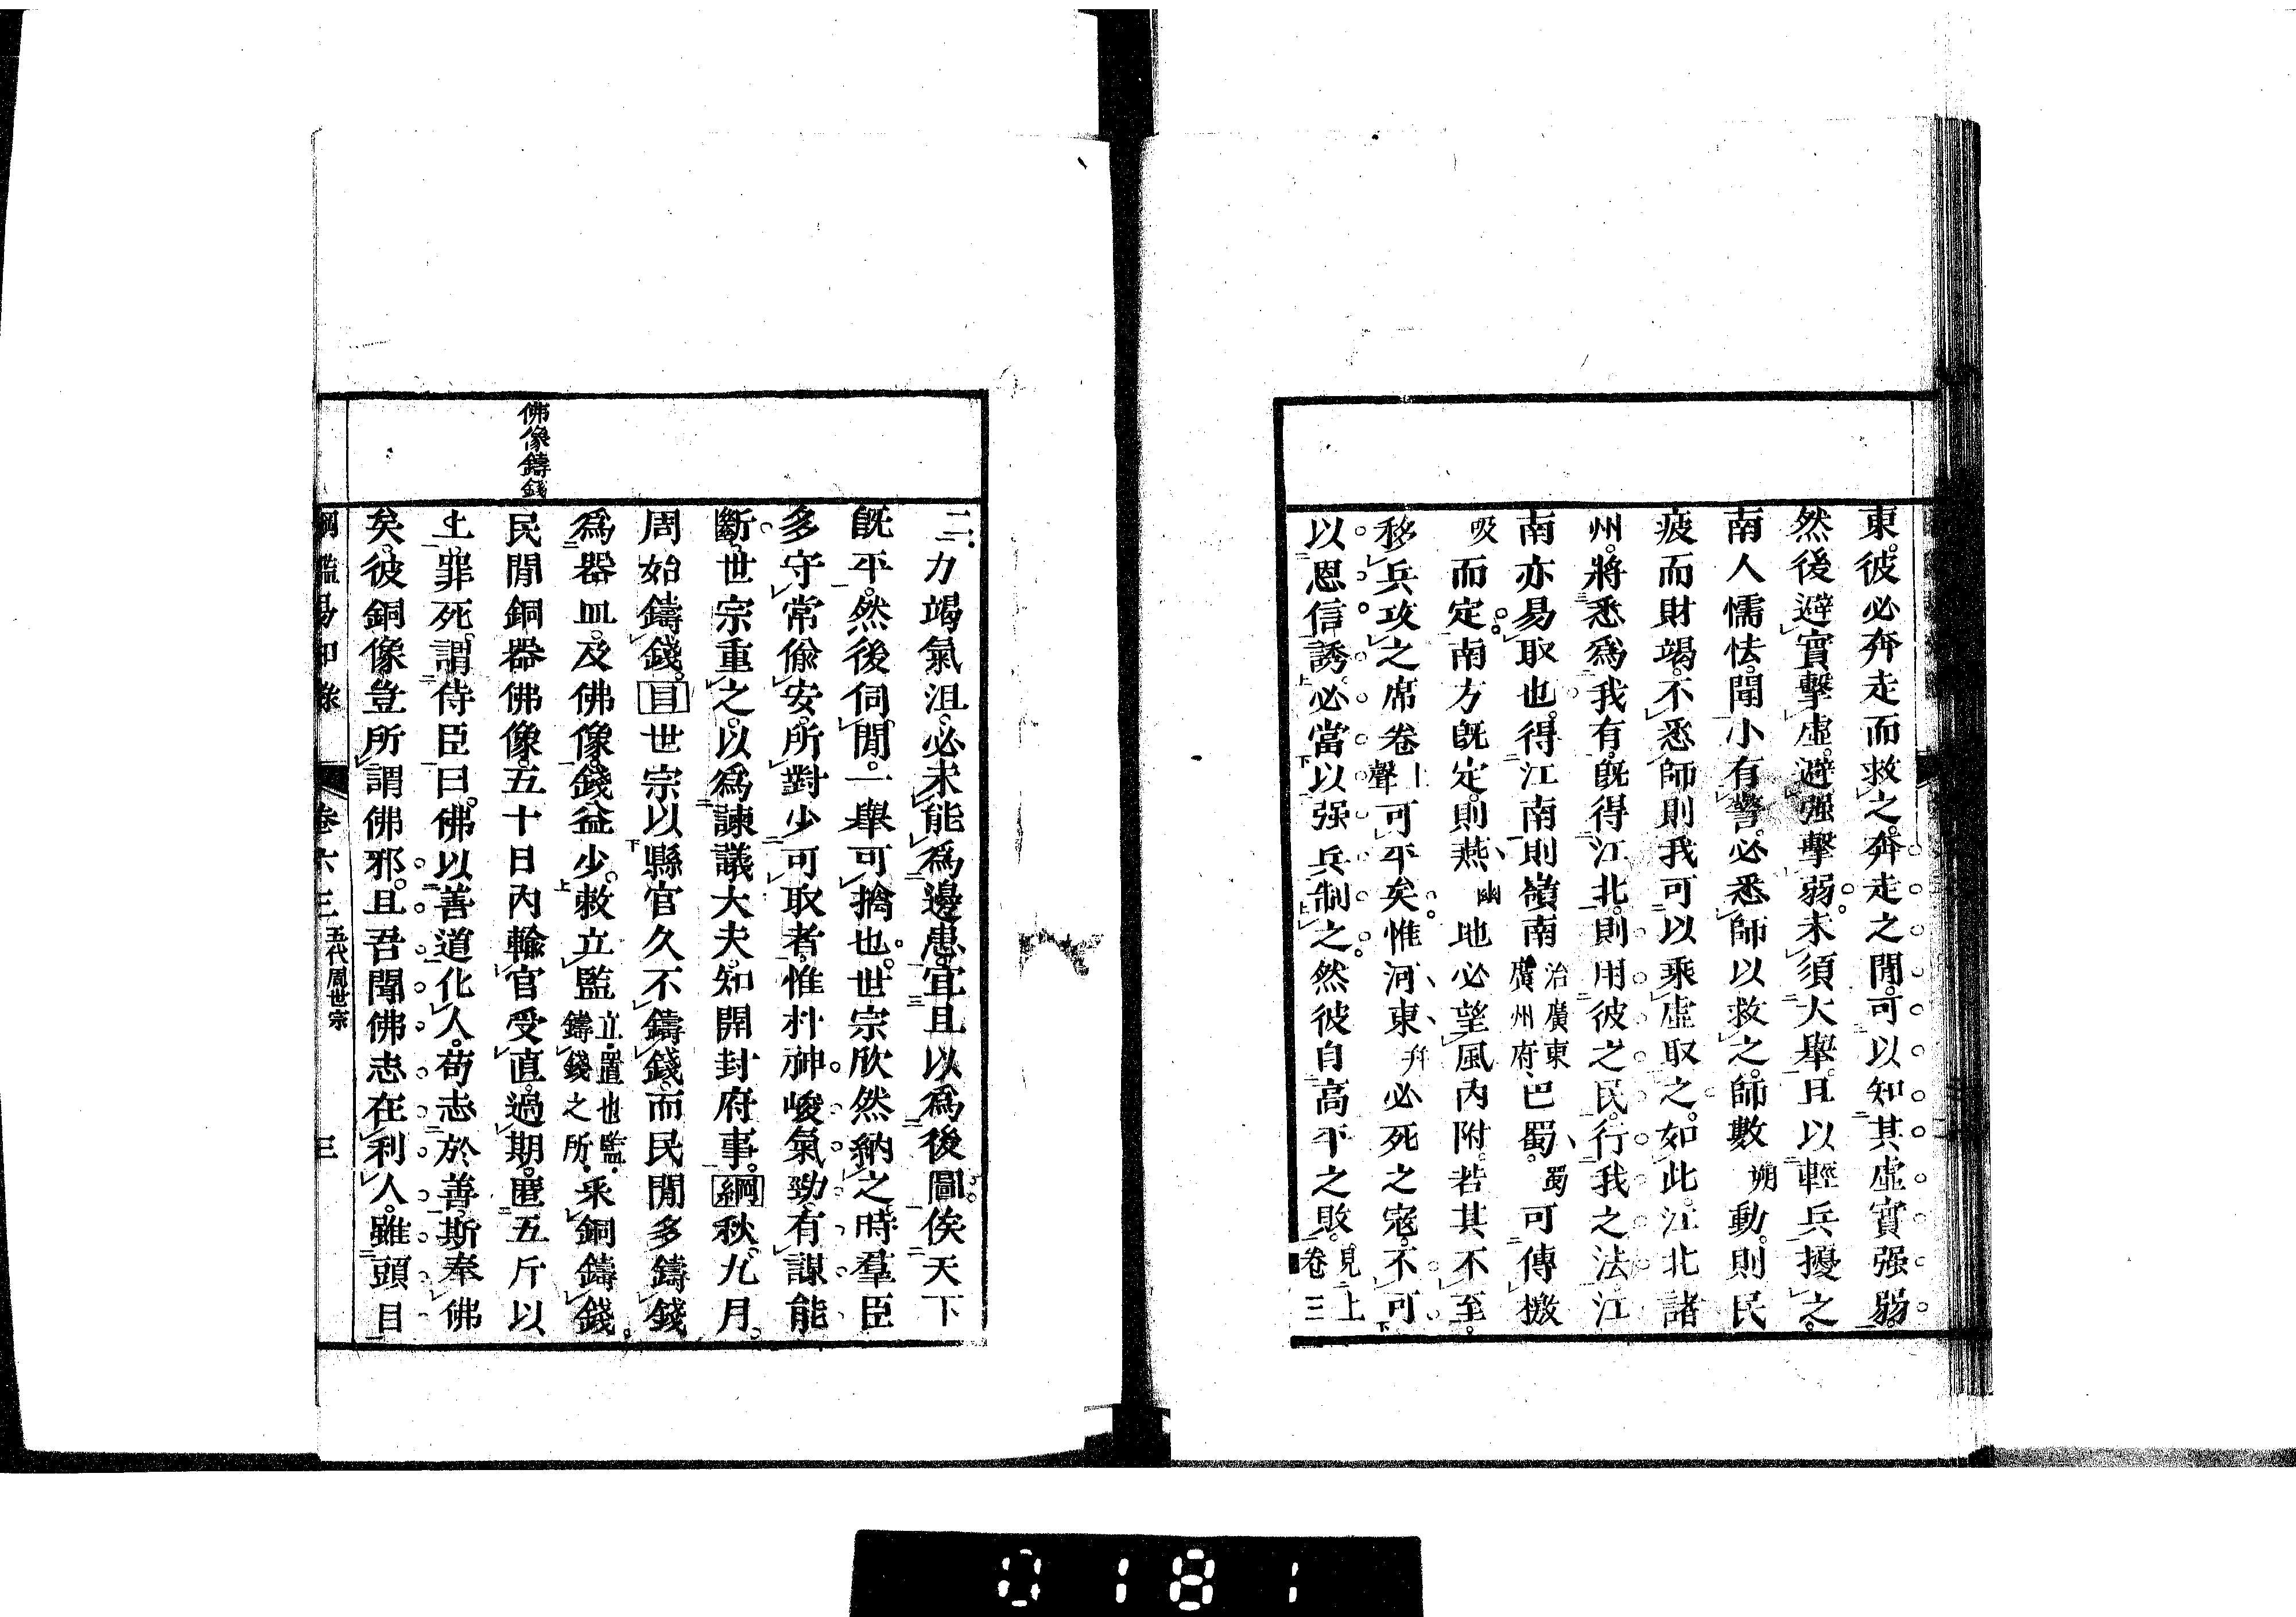 東。彼必奔走而救之。奔走之閒。可以知其虛實强弱。
然後避實擊虛。避强擊弱。未須大舉。且以輕兵擾之。
南人懦怯。聞小有警。必悉師以救之。師數朔動。則民
疲而財竭。不悉師則我可以乘虛取之。如此。江北諸
州。將悉爲我有。旣得江北。則用彼之民。行我之法。江
南亦易取也。得江南則嶺南治廣東廣州府、巴蜀、蜀可傳檄
吸而定。南方旣定。則燕、幽地必望風內附。若其不至。
移兵攻之。席卷上聲可平矣。惟河東、幷必死之寇。不可
以恩信誘。必當以强兵制之。然彼自高平之敗。見上卷三
二力竭氣沮。必未能爲邊患。宜且以爲後圖。俟天下
旣平。然後伺閒。一舉可擒也。世宗欣然納之。時羣臣
多守常偸安。所對少可取者。惟朴神峻氣勁。有謀能
斷。世宗重之。以爲諫議大夫。知開封府事。綱秋、九月。
周始鑄錢。目世宗以縣官久不鑄錢。而民閒多鑄錢
爲器皿。及佛像。錢益少。敕立監立、置也。監、鑄錢之所。采銅鑄錢。
民閒銅器佛像。五十日內輸官受直。過期。匿五斤以
上罪死。謂侍臣曰。佛以善道化人。苟志於善。斯奉佛
矣。彼銅像豈所謂佛邪。且吾聞佛志在利人。雖頭目
佛像鑄錢
綱鑑易知錄 卷六三 五代周世宗 三
0181